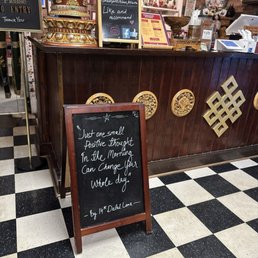 Thank You
NO ENTRY
like and
recommend
"Just one small
Positive thought
In the Morning
Can Change Your
Whole day"
- By 14th Dalai Lama -